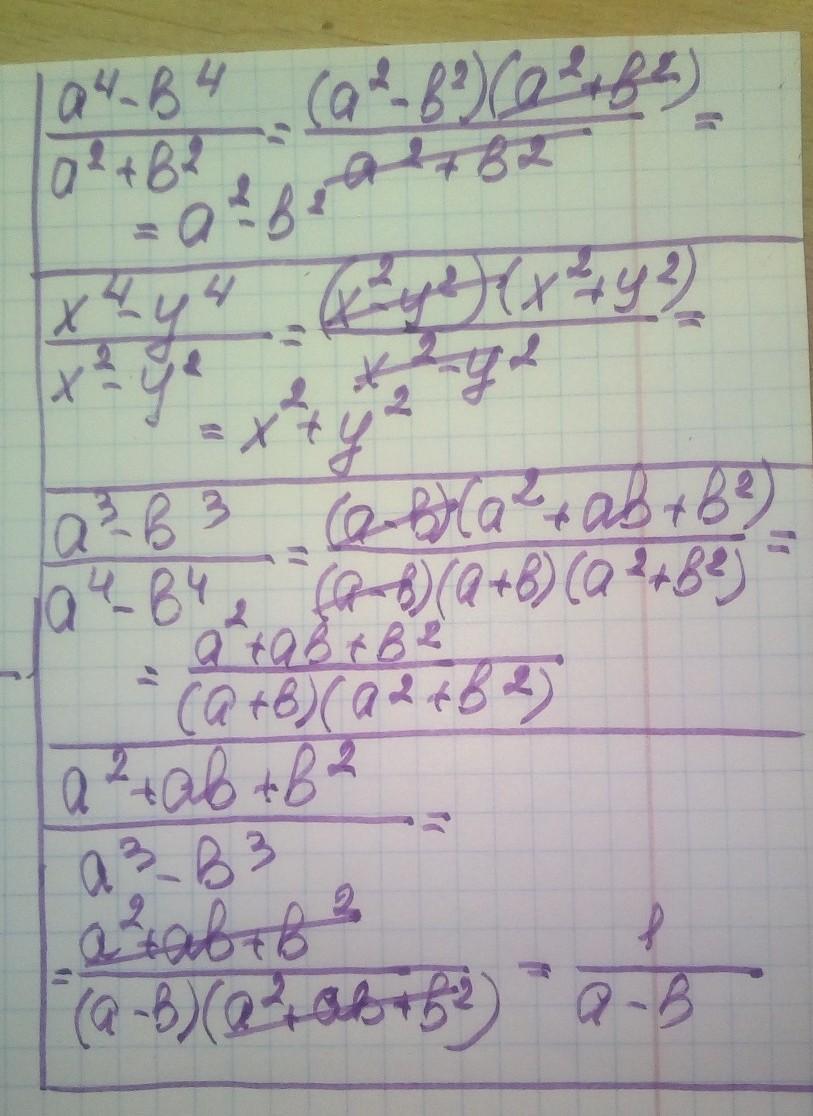 a⁴-b⁴/a²+b² = (a²-b²)(a²+b²)/a²+b² =
= a²-b²
x⁴-y⁴/x²-y² = (x²-y²)(x²+y²)/x²-y² =
= x²+y²
a³-b³/a⁴-b⁴ = (a-b)(a²+ab+b²)/(a-b)(a+b)(a²+b²) =
= a²+ab+b²/(a+b)(a²+b²)
a²+ab+b²/a³-b³ =
= a²+ab+b²/(a-b)(a²+ab+b²) = 1/a-b